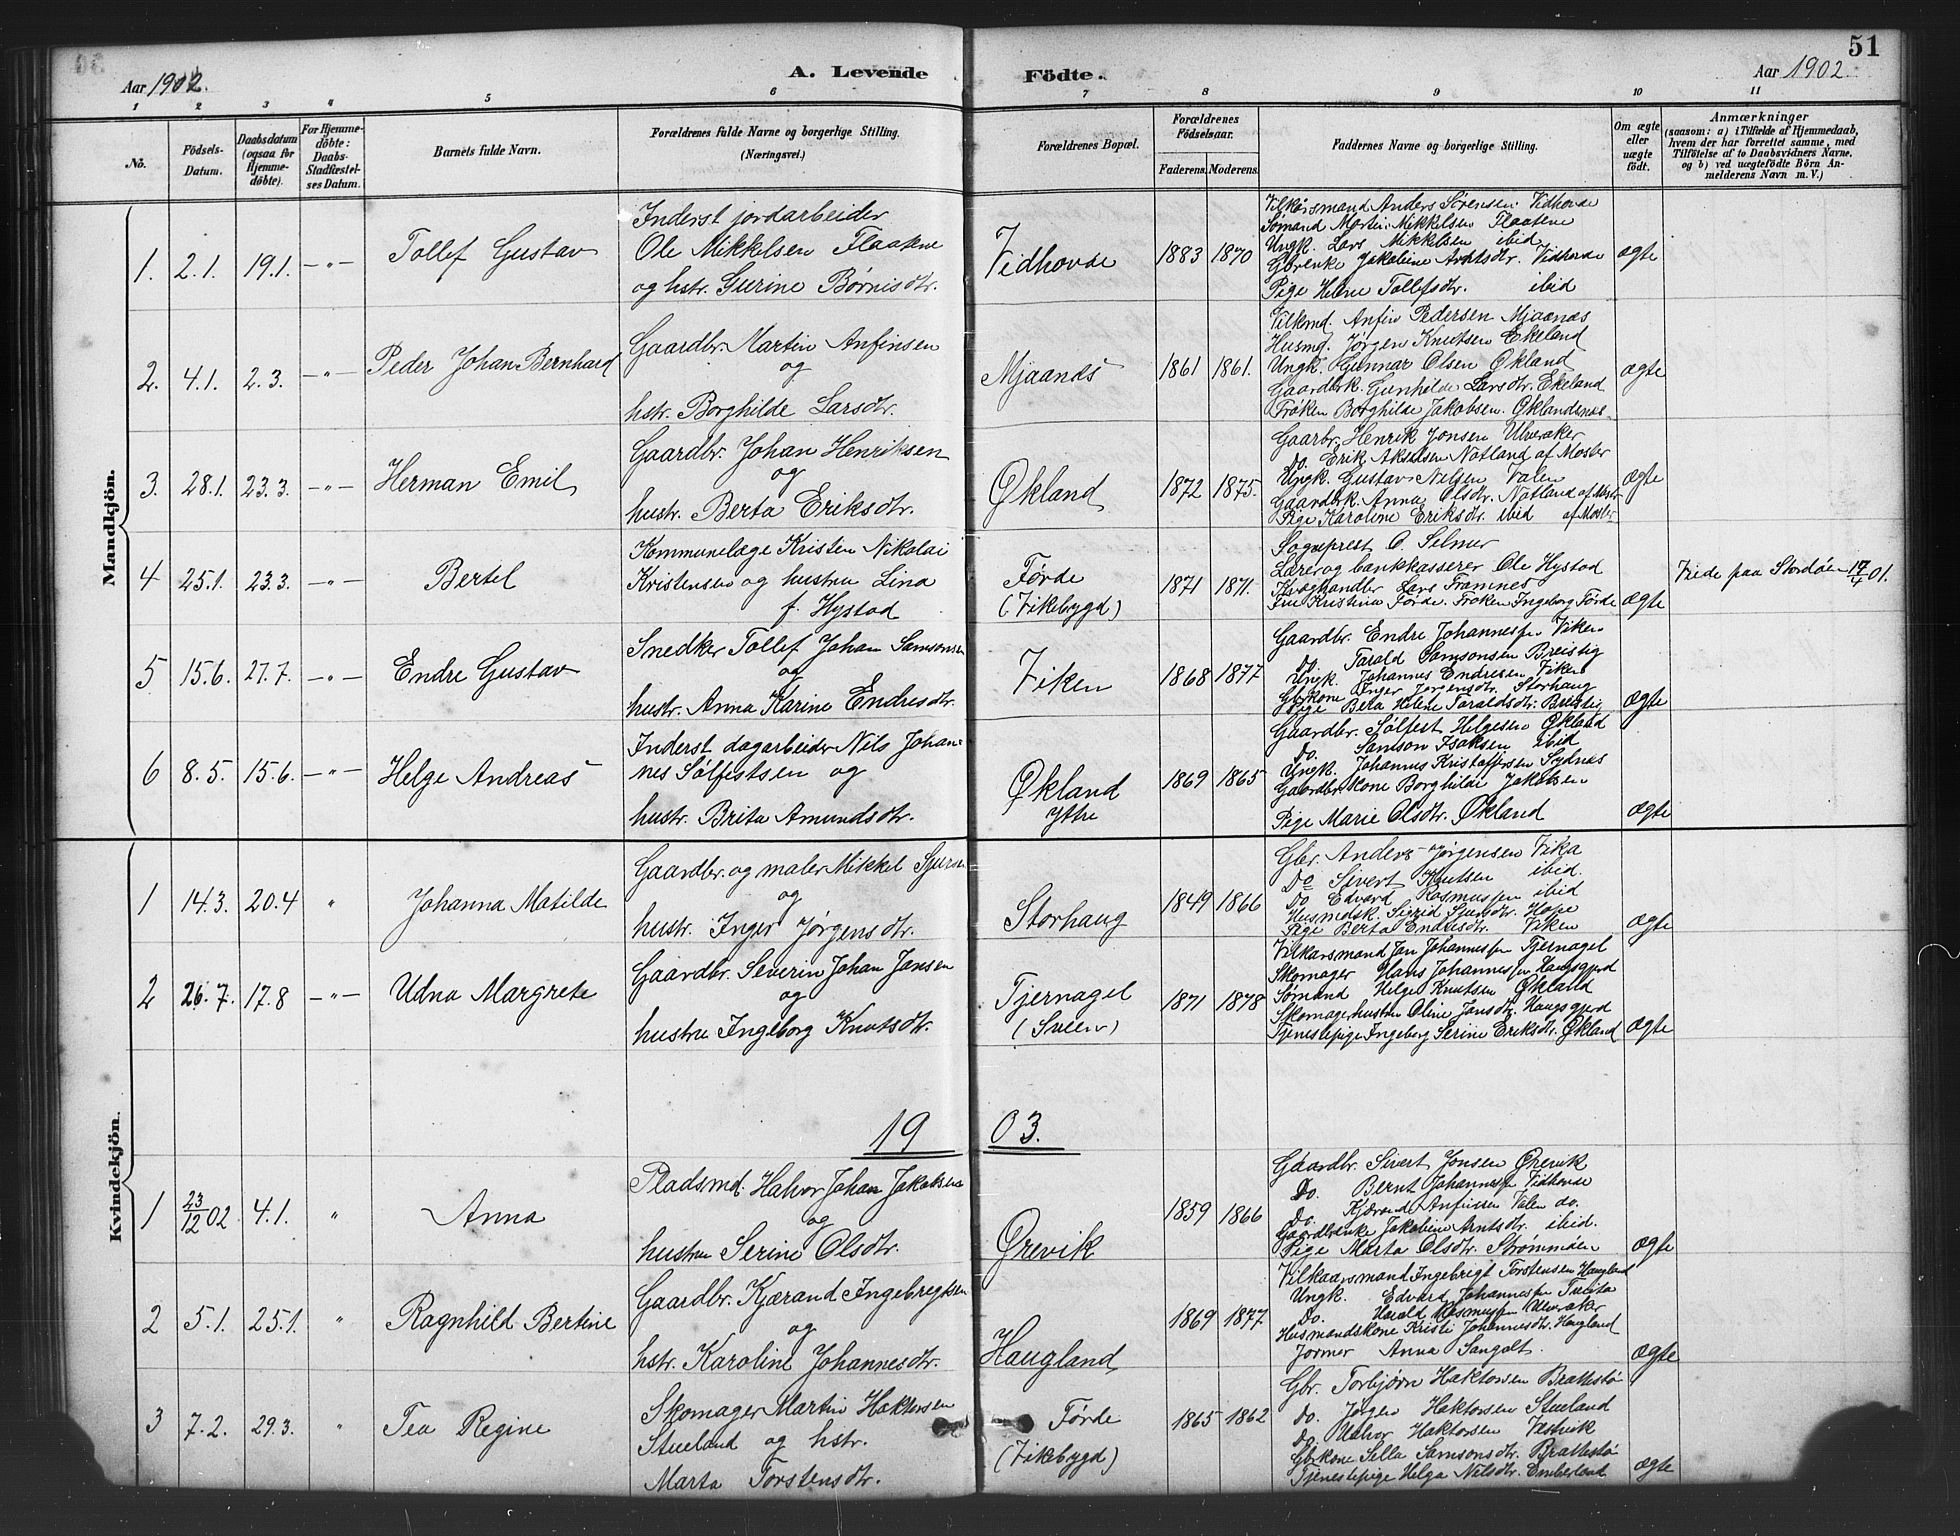 Aar 1902.
A. Levende
Födte.
Aar 1902.
51
1 2 3 4 5 6 7 8 9 10 11
No.
Födsels-Datum.
Daabsdatum (ogsaa for Hjemme-döbte).
For Hjemme-döbte: Daabs-Stadfæstel-ses Datum.
Barnets fulde Navn.
Forældrenes fulde Navne og borgerlige Stilling.
(Næringsvei.)
Forældrenes Bopæl.
Forældrenes Födselsaar.
Faderens. Moderens.
Faddernes Navne og borgerlige Stilling.
Om ægte eller uægte født.
Anmærkninger
(saasom: a) i Tilfælde af Hjemmedaab,
hvem der har forrettet samme, med
Tilföielse af to Daabsvidners Navne,
og b) ved uægtefödte Börn An-
melderens Navn m. V.)
Mandkjön.
1. 2.1. 19.1. -"- Tollef Gustav
Inderst jordarbeider
Ole Mikkelsen Flaatene
og hstr. Surine Børnisdtr.
Vidhovde 1883 1870
Vilkårsmand Anders Sørensen Vidhovde
Sømand Martin Mikkelsen Flaatene
Ungk. Lars Mikkelsen ibid
Gbrenke Jakobine Arntsdtr. Vidhovde
Pige Helene Tollefsdtr. ibid
ægte
2. 4.1. 2.3. -"- Peder Johan Bernhard
Gaardbr. Martin Anfinsen
og
hstr. Borghilde Larsdtr.
Mjaanæs 1861 1861.
Vilkmd. Anfin Pedersen Mjaanæs
Husmd. Jørgen Knutsen Ekeland
Ungk. Gunnar Olsen Økland
Gaardbrk. Gunhilde Larsdtr. Ekeland
Frøken Borghilde Jakobsen. Øklandsnæs
ægte
3. 28.1. 23.3. -"- Herman Emil
Gaardbr. Johan Henriksen
og
hustr. Berta Eriksdtr.
Økland 1872 1875.
Gaarbr. Henrik Jonsen Ulveraker
Do. Erik Akselsen Nøtland af Moster
Ungk. Gustav Nilsen Valen
Gaardbrk. Anna Olsdtr. Nøtland af Moster
Pige Karoline Eriksdtr. ibid af Moster
ægte
4 25.1. 23.3. -"- Bertel
Kommunelæge Kristen Nikolai
Kristensen og hustru Lina
f. Hystad
Førde
(Vikebygd) 1871 1871.
Sogneprest O. Selmer
Lærer og bankkasserer Ole Hystad
Kvæghandler Lars Framnes
Fru Kristina Førde. Frøken Ingeborg Førde
ægte
Viede paa Stordøen 17/4 01.
5 15.6. 27.7. -"- Endre Gustav
Snedker Tollef Johan Samsonsen
og
hustr. Anna Karine Endresdtr.
Viken 1868 1877
Gaardbr. Endre Johannessen Viken
Do. Tarald Samsonsen Breistig
Ungk. Johannes Endresen Viken
Gbrkone Inger Jørgensdtr. Storhaug
Pige Berta Helene Taraldsdtr. Breistig
ægte
6 8.5. 15.6. -"- Helge Andreas
Inderst dagarbeider Nils Johan-
nes Sølfestsen og
hustr. Brita Amundsdtr.
Økland
Ytre 1869 1865
Gaardbr. Sølfest Helgesen Økland
Do. Samson Isaksen ibid
Ungk. Johannes Kristoffersen Sydnes
Gaardbrkone Borghilde Jakobsen
Pige Marie Olsdtr. Økland
ægte
Kvindekjön.
1 14.3. 20.4 " Johanna Matilde
Gaardbr. og maler Mikkel Sjursen
og
hustr. Inger Jørgensdtr.
Storhaug 1849 1866
Gbr. Anders Jørgensen Vika
Do Sivert Knutsen ibid.
Do. Edvard Rasmussen ibid
Husmdsk. Sigrid Sjursdtr. Hope
Pige Berta Endresdtr. Viken
ægte
2 26.7. 17.8 -"- Udna Margrete
Gaardbr. Severin Johan Jansen
og
hustru Ingeborg Knutsdtr.
Tjernagel
(Sveen) 1871 1878
Vilkarsmand Jan Johannessen Tjernagel
Skomager Hans Johannessen Haugsgjerd
Sømand Helge Knutsen Økland
Skomagerhustru Oline Jansdtr. Haugsgjerd
Tjenestepige Ingeborg Serine Eriksdtr. Økland
ægte
19 03.
1 23/12 02 4.1. " Anna
Pladsmd. Halvor Johan Jakobsen
og
hustru Serine Olsdtr.
Ørevik 1859 1866
Gaardbr. Sivert Jonsen Ørevik
Do. Bernt Johannessen Vidhovde
Do. Kjærand Anfinsen Valen do.
Gaardbrenke Jakobine Arntsdtr. ibid.
Pige Marta Olsdtr. Strømmøen
ægte
2 5.1. 25.1. " Ragnhild Bertine
Gaardbr. Kjærand Ingebregtsen
og
hstr. Karoline Johannesdtr.
Haugland 1869 1877
Vilkaarsmand Ingebrigt Torstensen Haugland
Ungk. Edvard Johannessen Tveita
Do. Harald Rasmussen Ulveraker
Husmandskone Kristi Johannesdtr. Haugland
Jormor Anna Sangolt.
ægte
3 7.2. 29.3. " Tea Regine
Skomager Martin Haktorsen
Stueland og hstr.
Marta Torstensdtr.
Førde
(Vikebygd) 1865 1862
Gbr. Torbjørn Haktorsen Brattestø
Do. Jørgen Haktorsen Stueland
Do Halvor Haktorsen Vestvik
Gbrkone Sella Samsonsdtr. Brattestø
Tjenestepige Helga Nilsdtr. Emberland
ægte